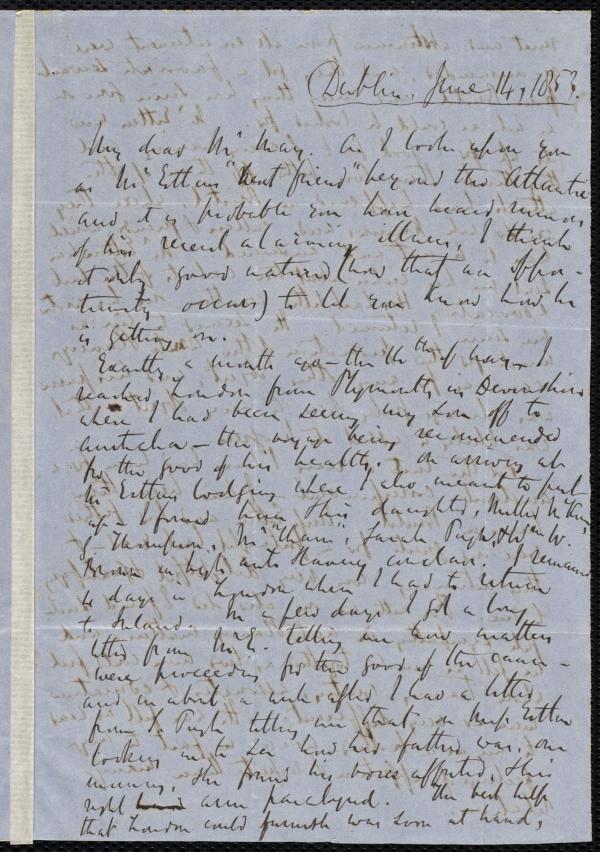 Dublin, June 14, 1853.
My dear Mr May. As I look upon you
as Mr Estlin's "best friend" beyond the Atlantic
and it is probable you have heard rumors
of his recent alarming illness, I think
it only good natured (now that an oppor-
tunity occurs) to let you know how he
is getting on.
Exactly a month ago - the 14th of May - I
reached London from Plymouth in Devonshire
where I had been seeing my son off to
Australia - the voyage being recommended
for the good of his health. On arriving at
Mr Estlin's lodgings where I also meant to put
up - I found him & his daughter,
G. Thompson, Sarah Pugh, & Wm W.
Brown in high anti slavery conclave. I remained
4 days in London when I had to return
to Ireland. In a few days I got a long
letter from Mr E. telling me how matters
were proceeding for the good of the cause -
and in about a week after I had a letter
from S. Pugh telling me that on Miss Estlin
looking in to see how her father was, one
morning, she found his voice affected, & his
right arm paralyzed. The best help
that London could furnish was soon at hand,